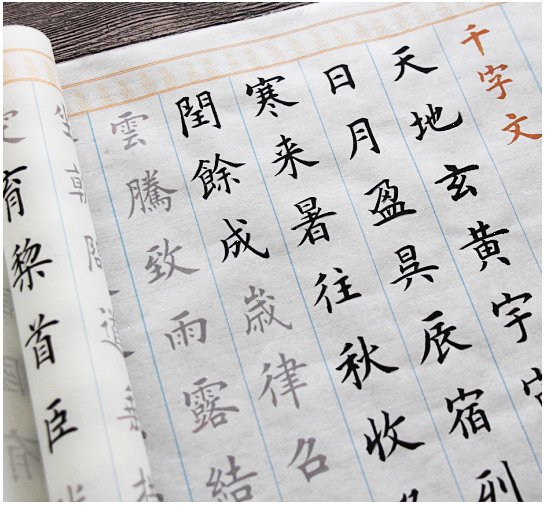 千字文
天地玄黄宇
日月盈昃辰宿列
寒来暑往秋收
閏餘成歲律吕
雲騰致雨露結
坐朝
育黎首臣